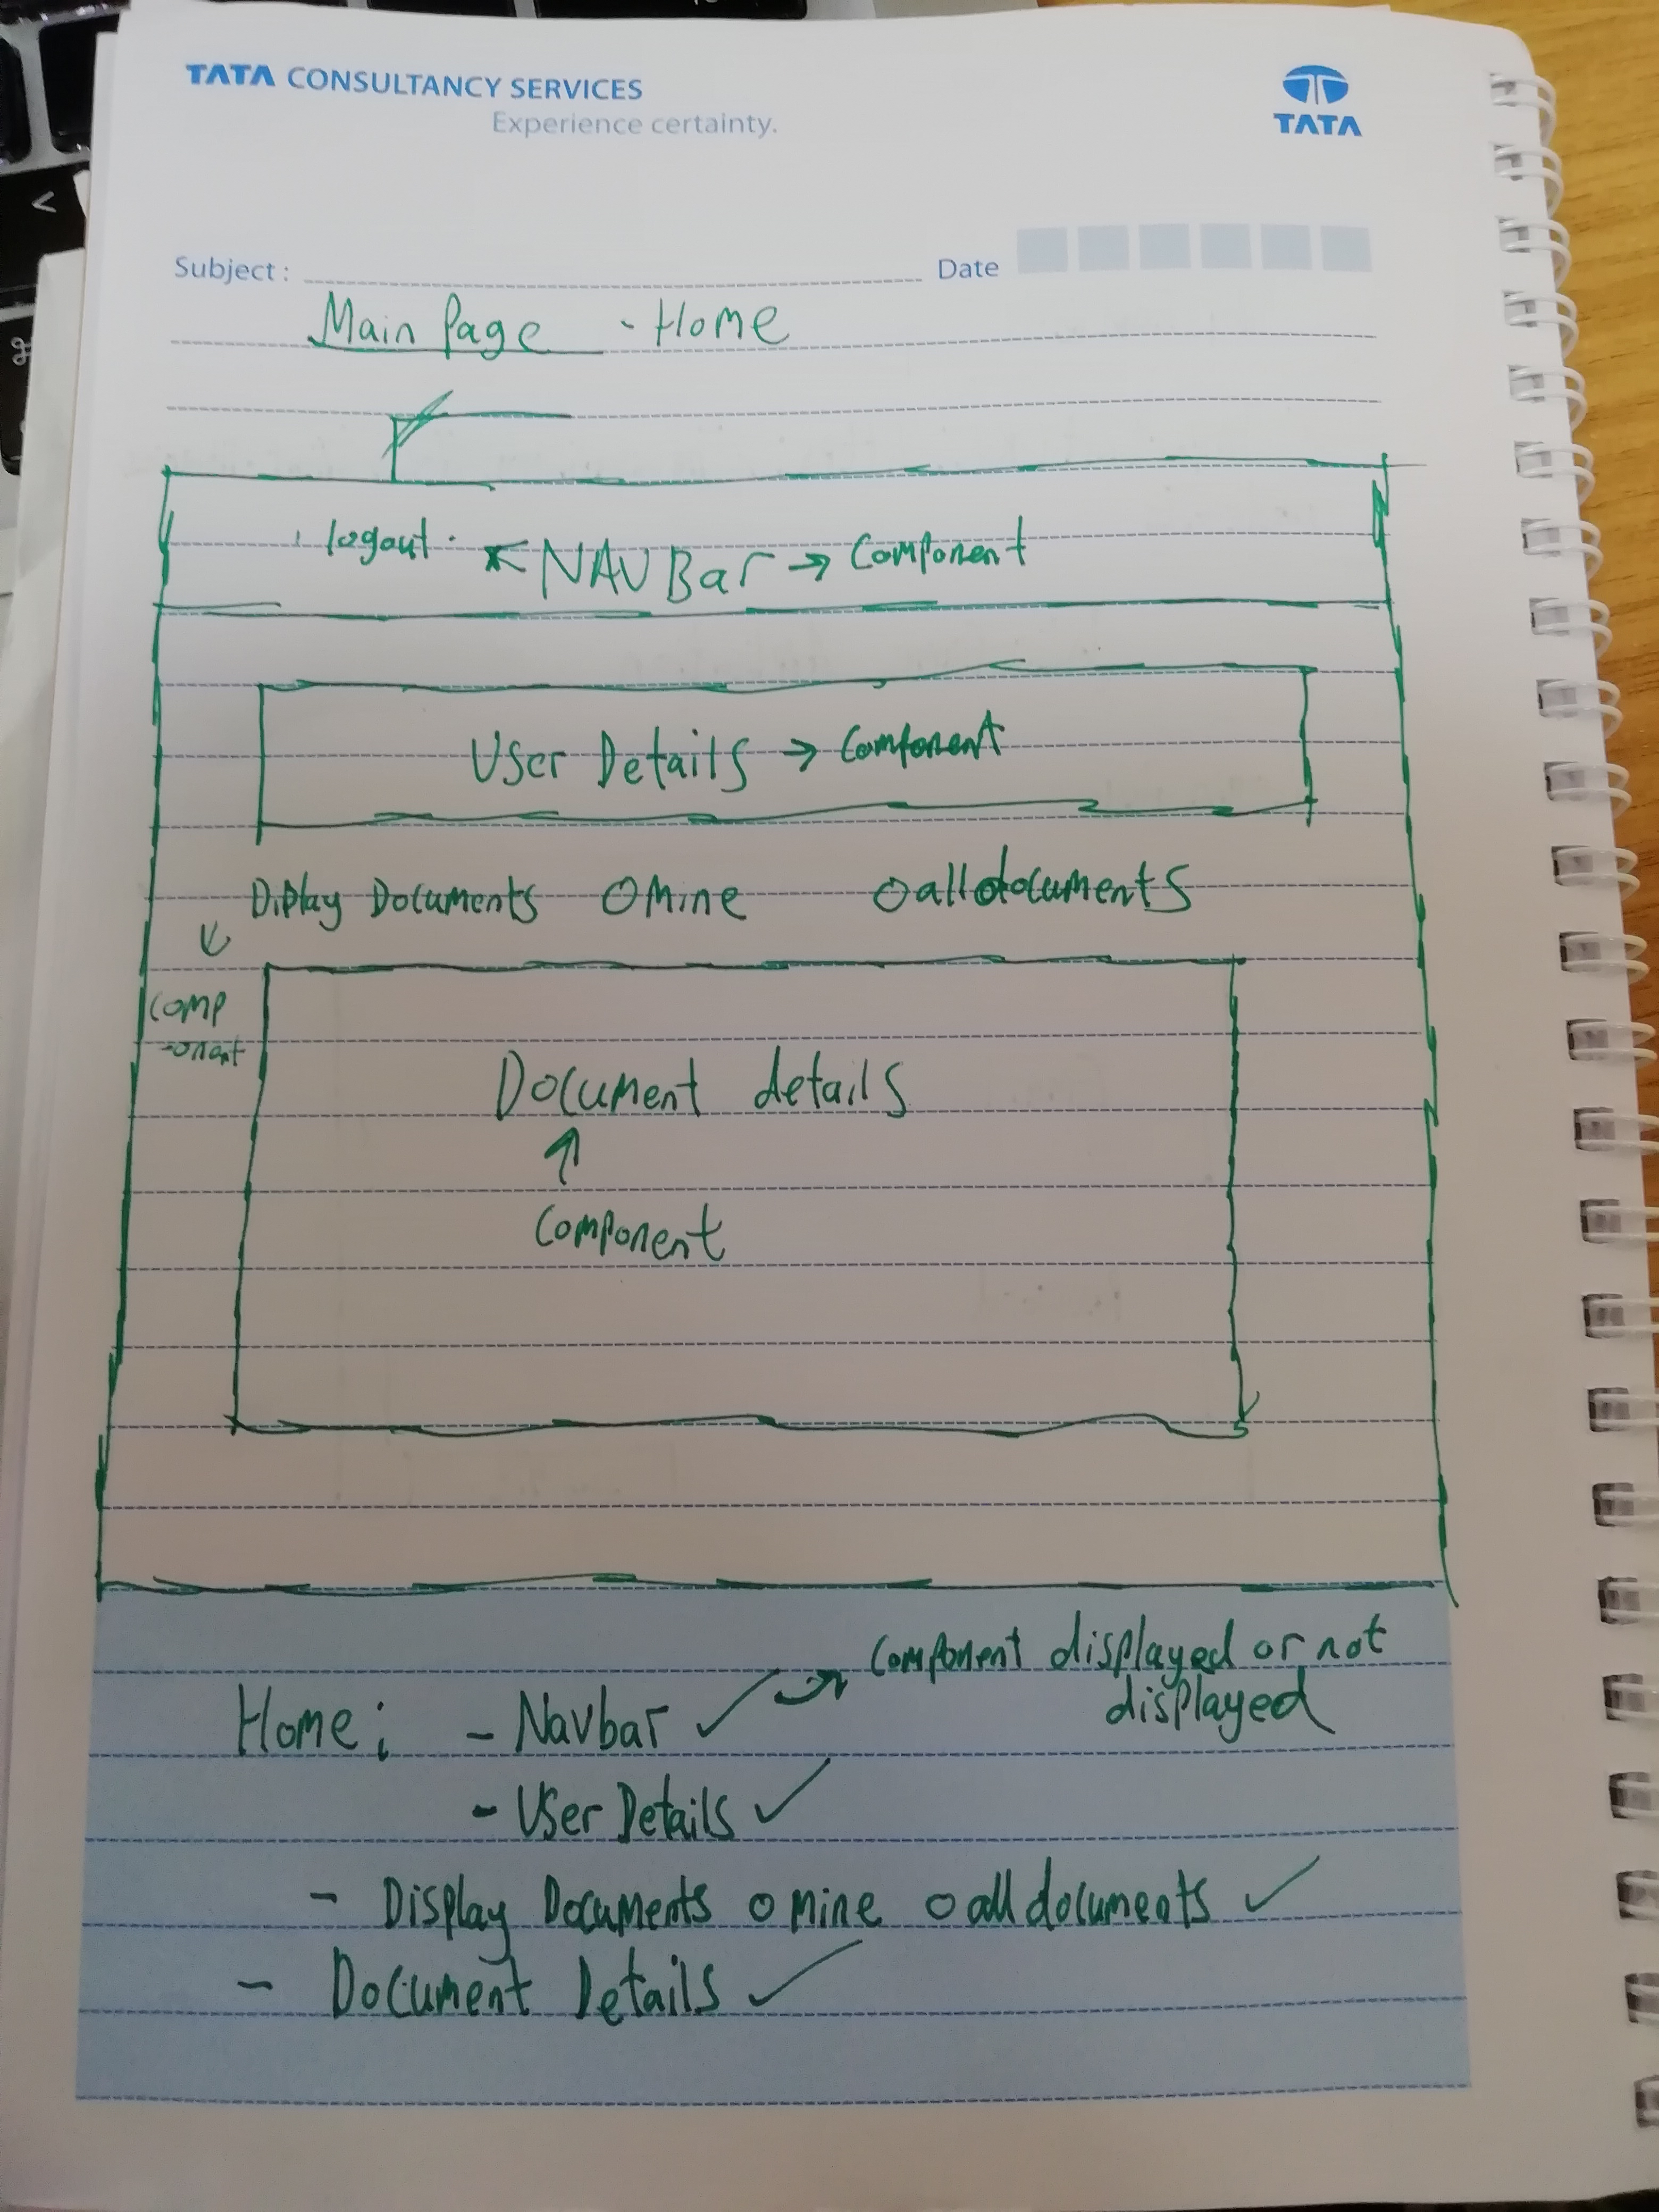 TATA CONSULTANCY SERVICES
Experience certainty.
TATA
Subject :
Date
Main Page - Home
logout
NAV Bar → Component
User Details → Component
Diplay Documents O Mine O all documents
Comp
-onant
Document details
↑
Component
Component displayed or not
displayed
Home: - Navbar ✓
- User Details ✓
- Display Documents O mine O all documents ✓
- Document Details ✓